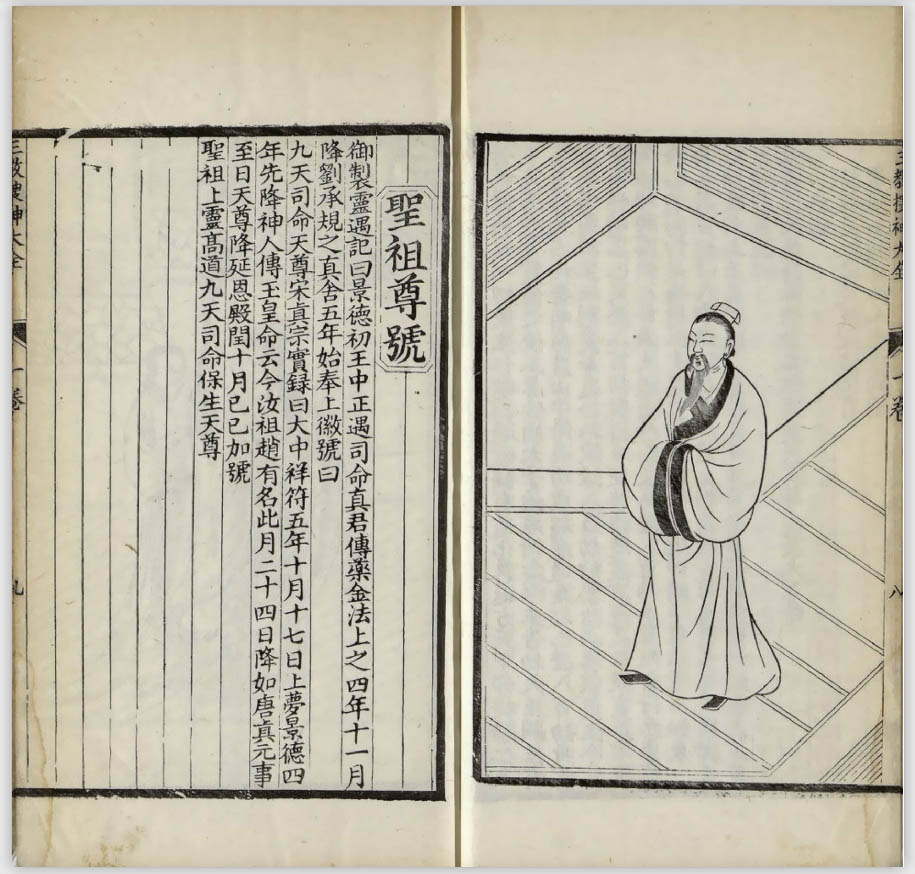 三教搜神大全
一卷
八
聖祖尊號
御製靈遇記曰景德初王中正遇司命真君傳藥金法上之四年十一月
降劉承規之真舍五年始奉上徽號曰
九天司命天尊宋真宗實録曰大中祥符五年十月十七日上夢景德四
年先降神人傳王皇命云今汝祖趙有名此月二十四日降如唐真元事
至日天尊降延恩殿閏十月己巳加號
聖祖上靈高道九天司命保生天尊
三教搜神大全
一卷
九